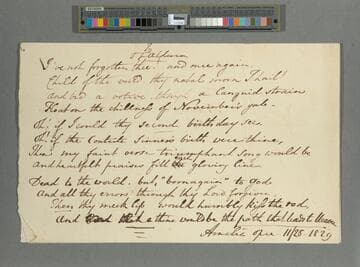 To Alpheus
I've not forgotten thee! and once again
Child of the world thy natal morn I hail!
And bid a votive a languid strain
Float on the chillness of November's gale.
Oh! if I could thy second birthday see
Oh! if the contrite sinner's birth were thine,
Then my faint verse triumphant song would be
And heartfelt praises fill each glowing line.
Dead to the world, but, "born again" to God
And all thy errors through thy Lord forgiven
Then thy meek lip would humbly kiss the rod,
And thine would be the path that leads to Heaven
Amelia Opie 11/25 1829